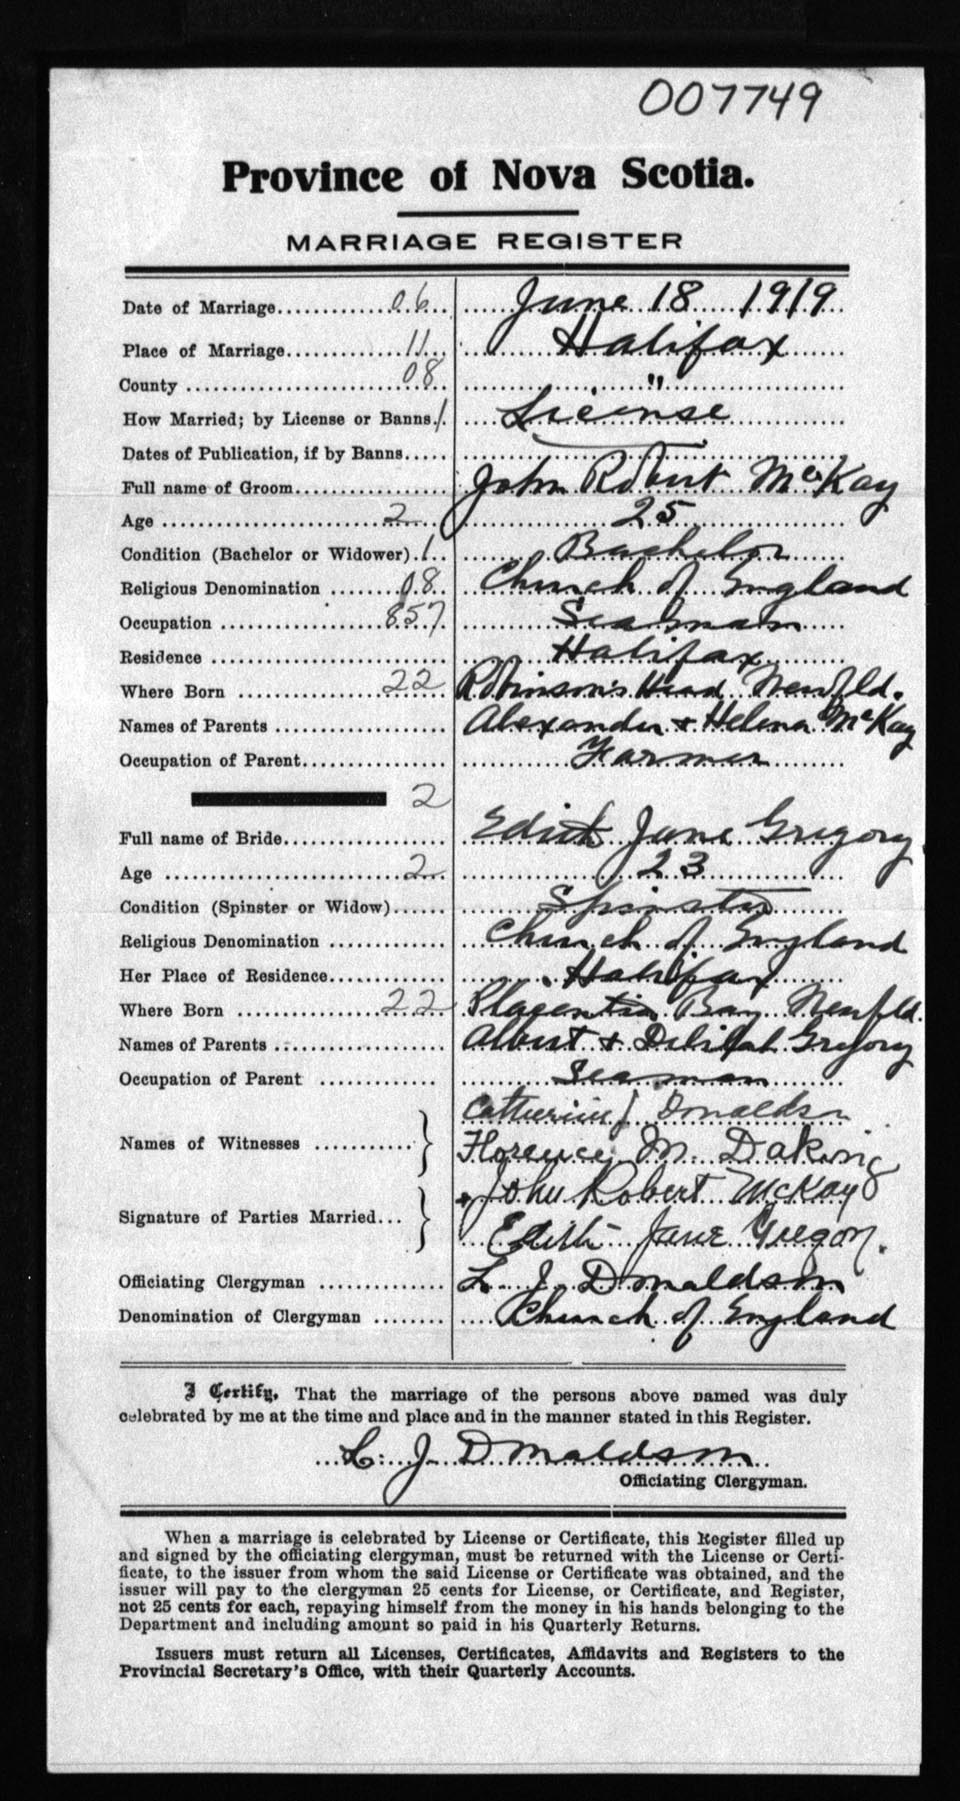 007749
Province of Nova Scotia.
MARRIAGE REGISTER
Date of Marriage............06.. June 18 1919
Place of Marriage............11... Halifax
County ........................08 "
How Married; by License or Banns./. License
Dates of Publication, if by Banns.....
Full name of Groom................ John Robert McKay
Age ........................2... 25
Condition (Bachelor or Widower).1.. Bachelor
Religious Denomination .......08.. Church of England
Occupation ..................857. Seaman
Residence ........................ Halifax
Where Born ................22.. Robinson's Head Newfld.
Names of Parents .................. Alexander & Helena McKay
Occupation of Parent................. Farmer
2
Full name of Bride.................. Edith Jane Gregory
Age .........................2... 23
Condition (Spinster or Widow)...... Spinster
Religious Denomination ............ Church of England
Her Place of Residence............. Halifax
Where Born ................22.. Placentia Bay Newfld.
Names of Parents .................. Albert & Delilah Gregory
Occupation of Parent ............. Seaman
Names of Witnesses ........... } Catherine J Donaldson
Florence M. Daking
Signature of Parties Married... } John Robert McKay
Edith Jane Gregory.
Officiating Clergyman .............. L. J. Donaldson
Denomination of Clergyman ........ Church of England
I Certify, That the marriage of the persons above named was duly
celebrated by me at the time and place and in the manner stated in this Register.
L. J. Donaldson
Officiating Clergyman.
When a marriage is celebrated by License or Certificate, this Register filled up
and signed by the officiating clergyman, must be returned with the License or Certi-
ficate, to the issuer from whom the said License or Certificate was obtained, and the
issuer will pay to the clergyman 25 cents for License, or Certificate, and Register,
not 25 cents for each, repaying himself from the money in his hands belonging to the
Department and including amount so paid in his Quarterly Returns.
Issuers must return all Licenses, Certificates, Affidavits and Registers to the
Provincial Secretary's Office, with their Quarterly Accounts.